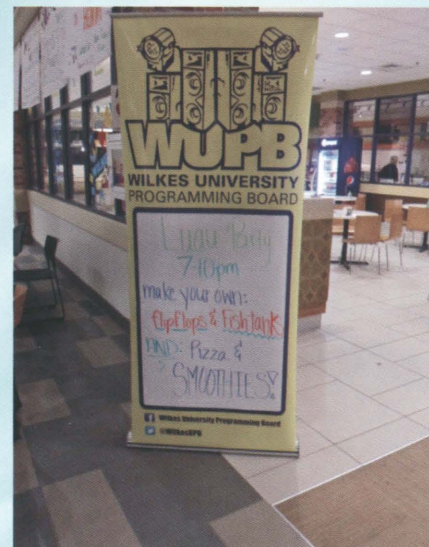 WUPB
WILKES UNIVERSITY
PROGRAMMING BOARD
Luau
7-10pm
make your own:
flipflops & Fish tank
AND: Pizza &
SMOOTHIES!
Wilkes University Programming Board
@WilkesUPB